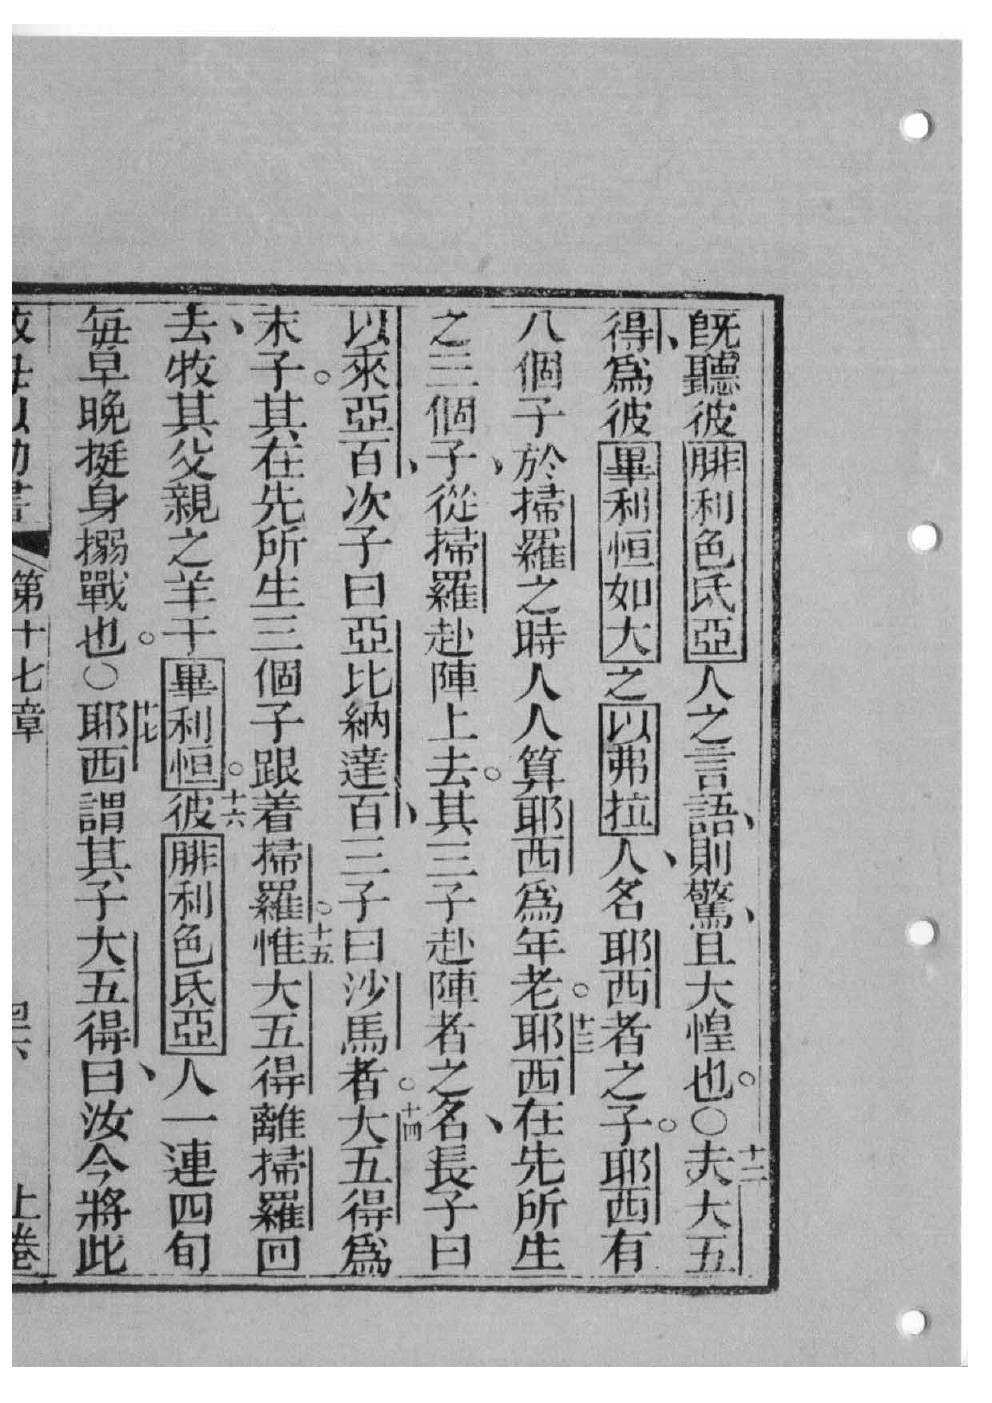 既聽彼腓利色氏亞人之言語、則驚、且大惶也。○十二夫大五
得、爲彼畢利恒如大之以弗拉人、名耶西者之子。耶西有
八個子、於掃羅之時人人算耶西爲年老。十三耶西在先所生
之三個子、從掃羅赴陣上去。其三子赴陣者之名、長子曰
以來亞百、次子曰亞比納達百、三子曰沙馬者。十四大五得爲
末子。其在先所生三個子跟着掃羅。十五惟大五得離掃羅回
去、牧其父親之羊于畢利恒。十六彼腓利色氏亞人一連四旬
每早晚挺身搦戰也。○十七耶西謂其子大五得曰、汝今將此
第十七章 上卷